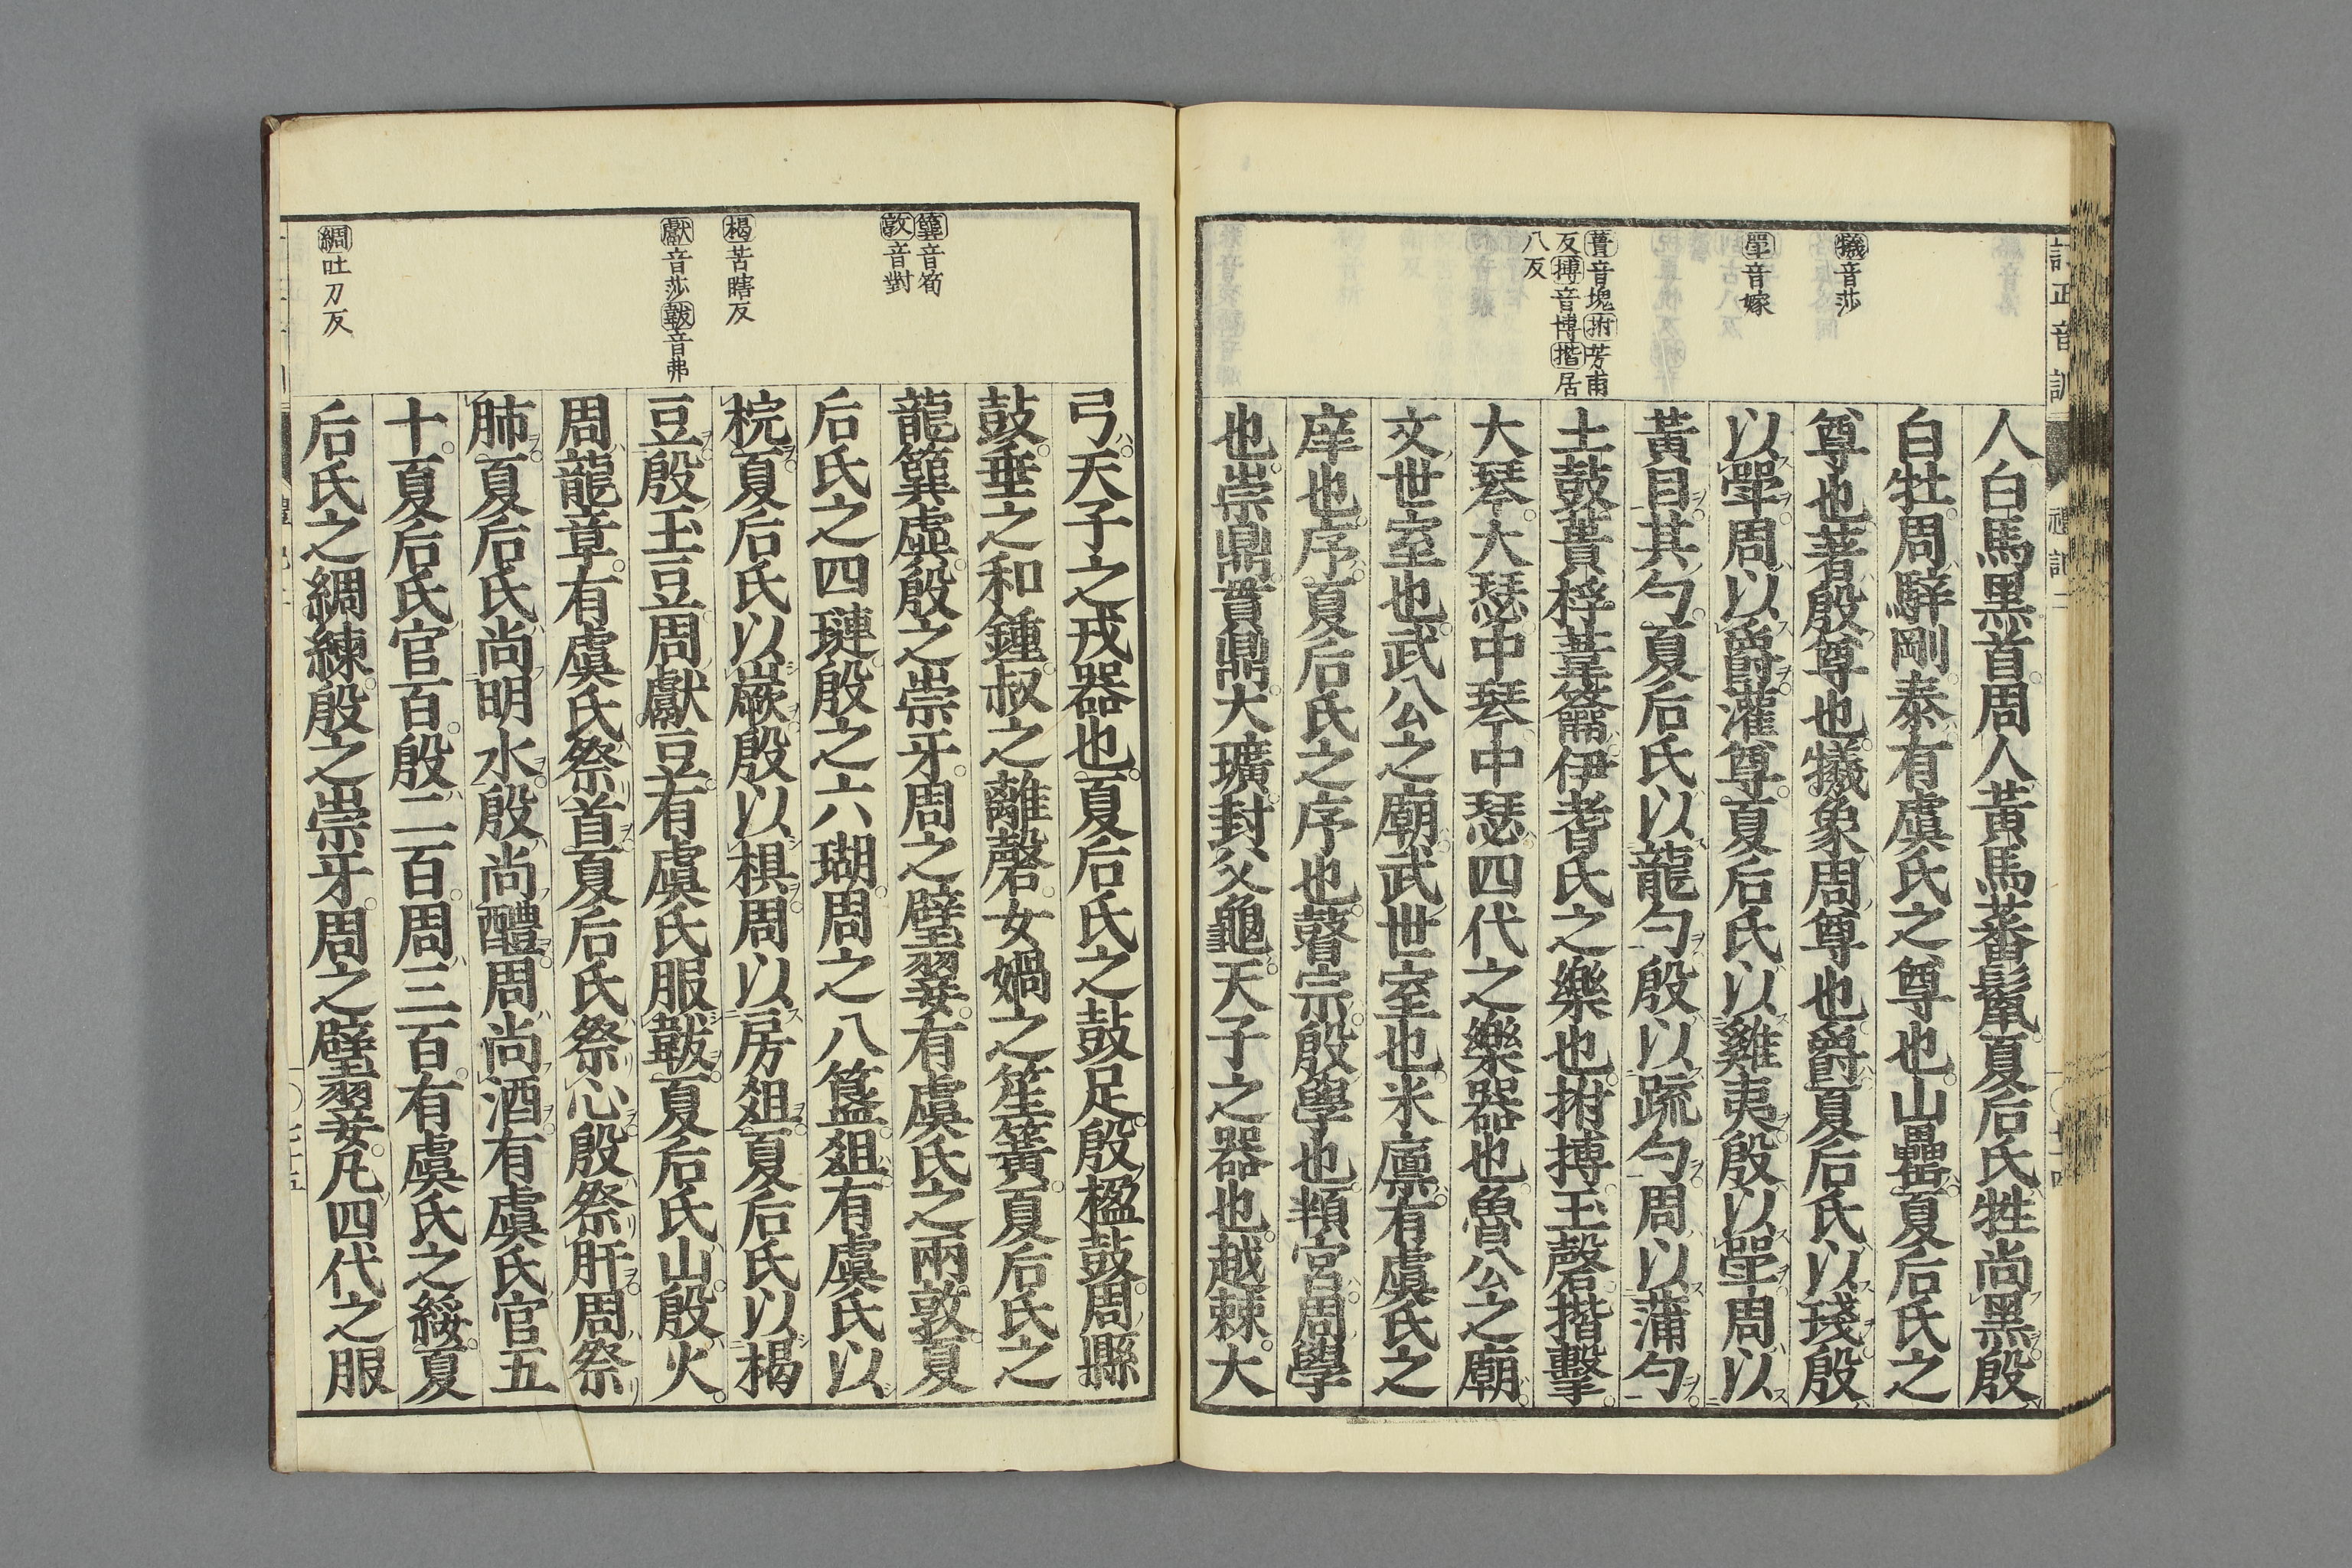 犧音莎
斝音嫁
蕢音塊拊芳甫
反搏音博揩居
八反
人白馬黑首周人黃馬蕃鬣夏后氏牲尚黑殷
白牡周騂剛泰有虞氏之尊也山罍夏后氏之
尊也著殷尊也犧象周尊也爵夏后氏以琖殷
以斝周以爵灌尊夏后氏以雞夷殷以斝周以
黃目其勺夏后氏以龍勺殷以疏勺周以蒲勺
土鼓蕢桴葦籥伊耆氏之樂也拊搏玉磬揩擊
大琴大瑟中琴中瑟四代之樂器也魯公之廟
文世室也武公之廟武世室也米廩有虞氏之
庠也序夏后氏之序也瞽宗殷學也頖宮周學
也崇鼎貫鼎大璜封父龜天子之器也越棘大
簨音筍
敦音對
楬苦瞎反
獻音莎韍音弗
綢吐刀反
弓天子之戎器也夏后氏之鼓足殷楹鼓周縣
鼓垂之和鍾叔之離磬女媧之笙簧夏后氏之
龍簨虡殷之崇牙周之璧翣有虞氏之兩敦夏
后氏之四璉殷之六瑚周之八簋俎有虞氏以
梡夏后氏以嶡殷以椇周以房俎夏后氏以楬
豆殷玉豆周獻豆有虞氏服韍夏后氏山殷火
周龍章有虞氏祭首夏后氏祭心殷祭肝周祭
肺夏后氏尚明水殷尚醴周尚酒有虞氏官五
十夏后氏官百殷二百周三百有虞氏之綏夏
后氏之綢練殷之崇牙周之璧翣凡四代之服